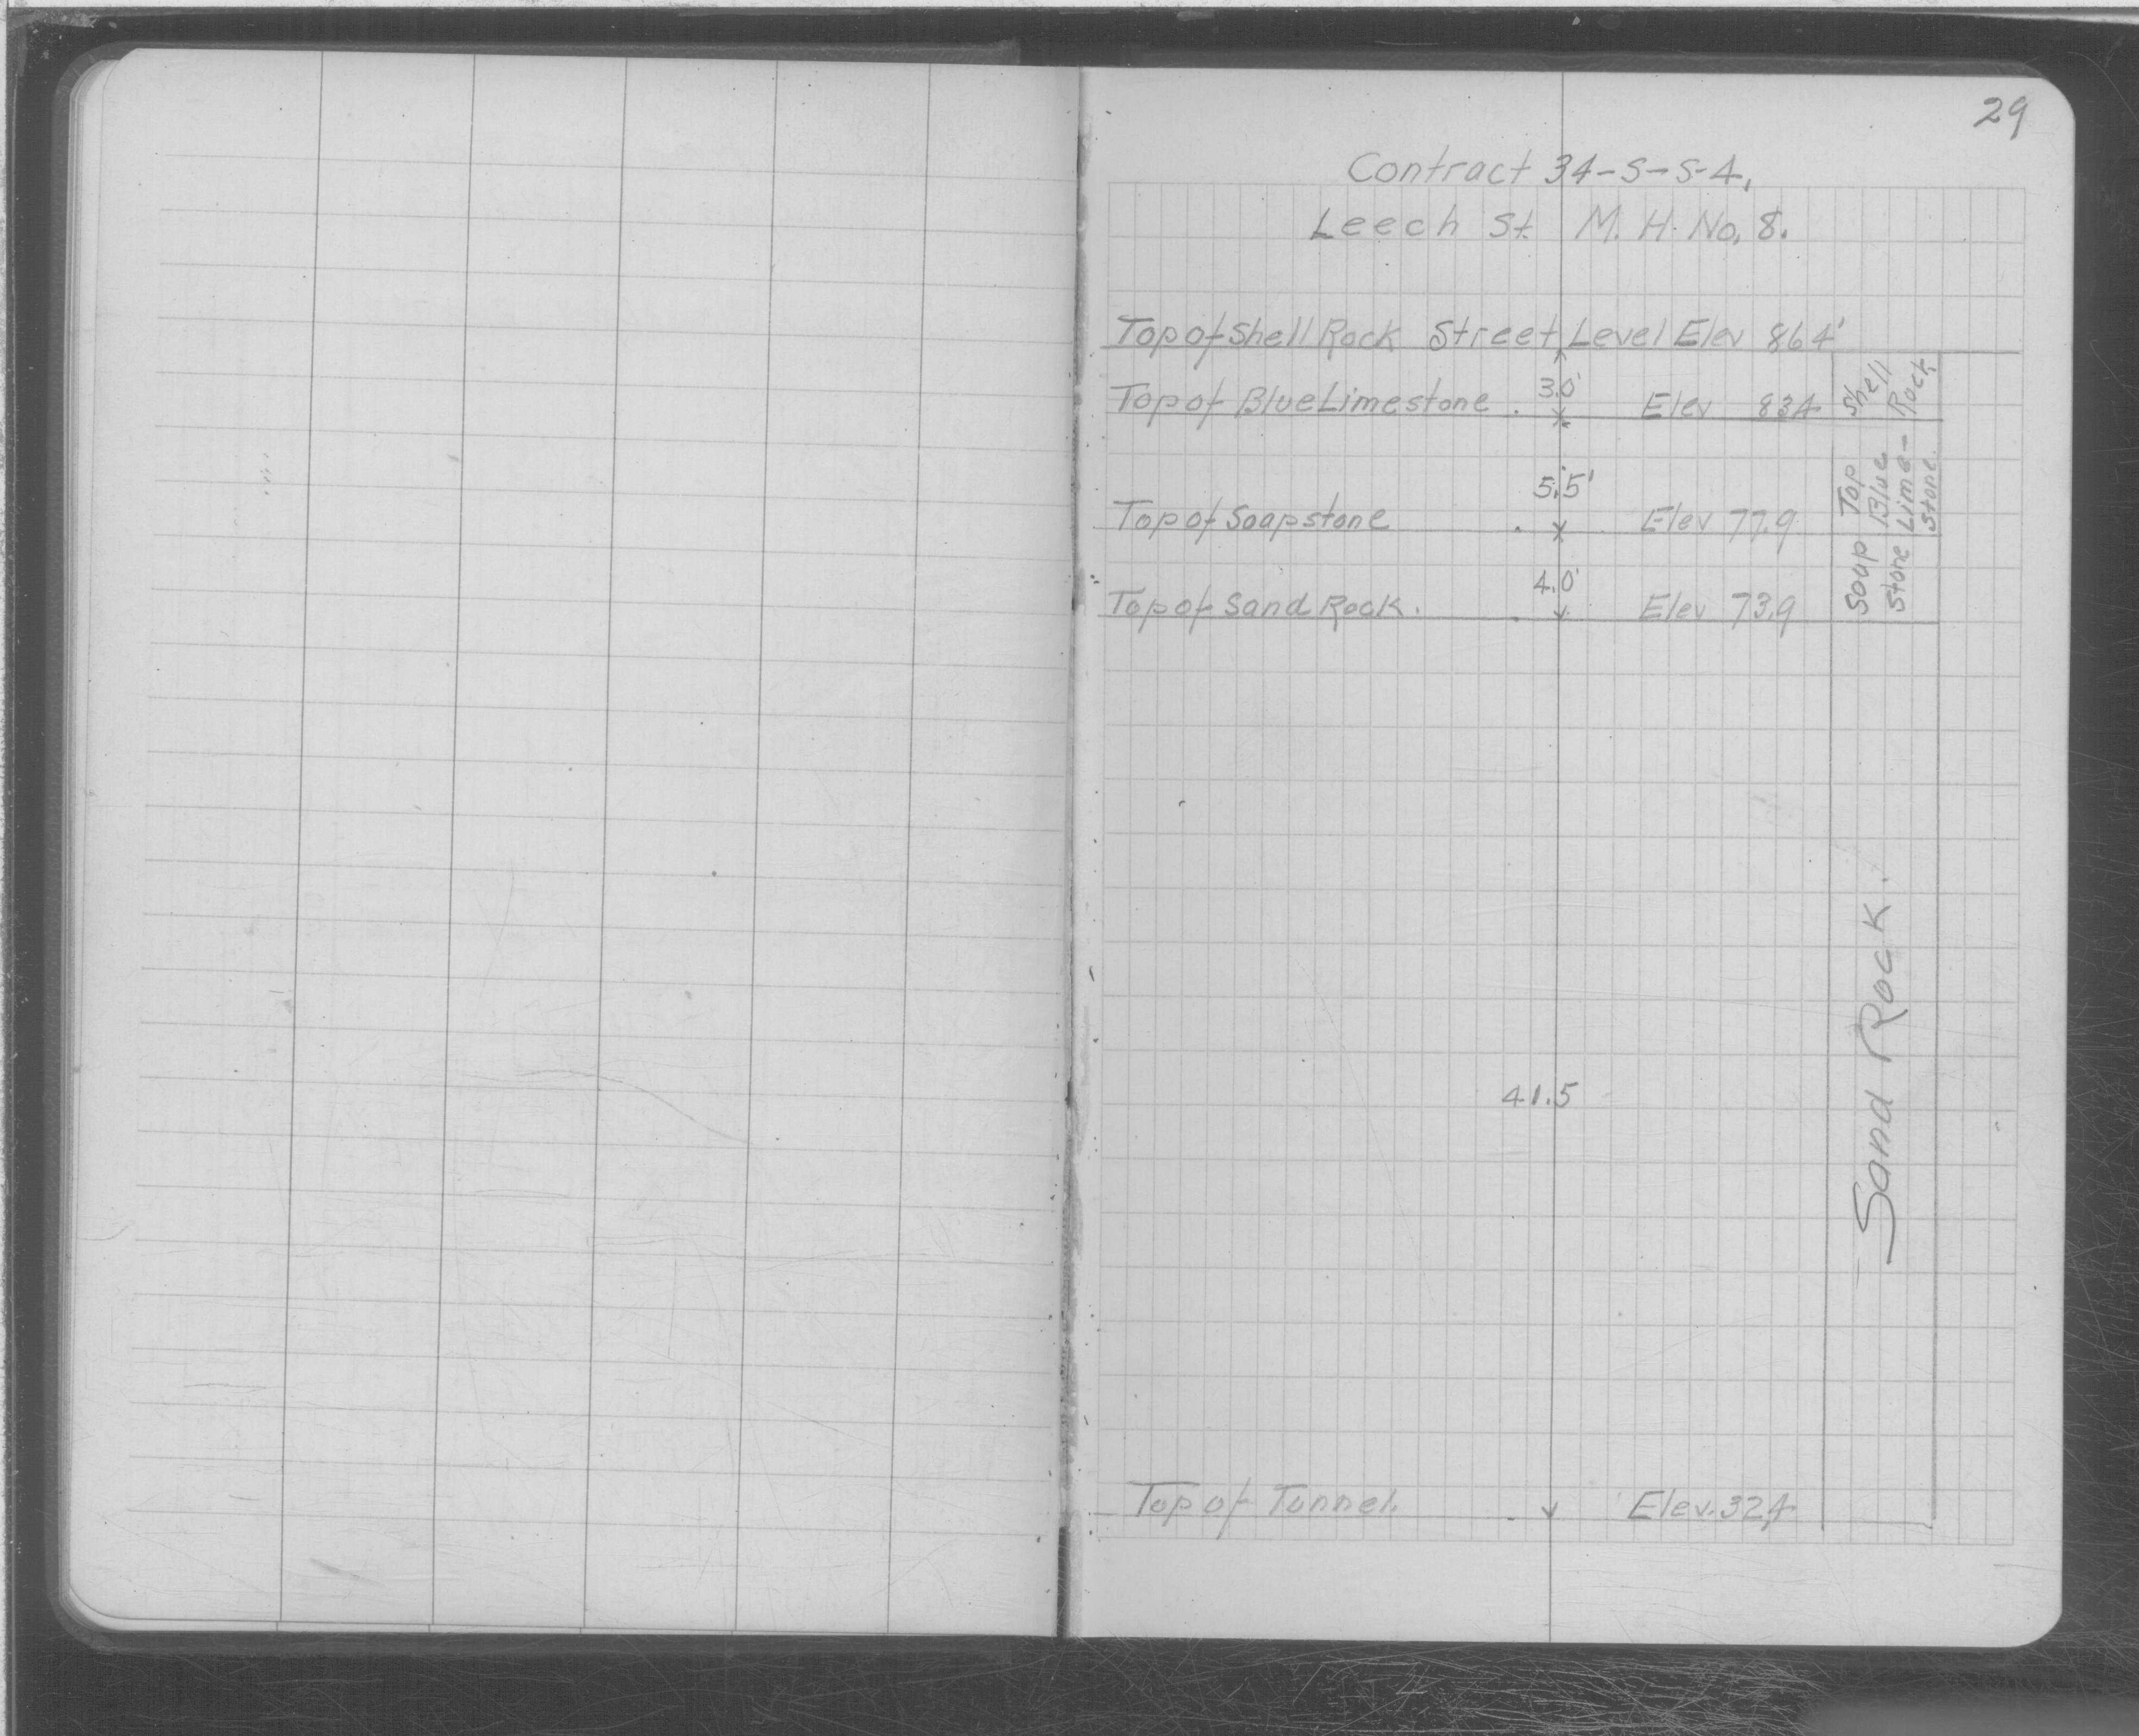 29
Contract 34-S-S-4,
Leech St. M. H. No. 8.
Top of Shell Rock Street Level Elev 86.4'
3.0'
Top of Blue Limestone . Elev 83.4
Shell
Rock
5.5'
Top of Soapstone . Elev 77.9
Top
Blue
Lime-
stone.
4.0'
Top of Sand Rock. . Elev 73.9
Soup
Stone
41.5
Sand Rock.
Top of Tunnel. . Elev. 32.4